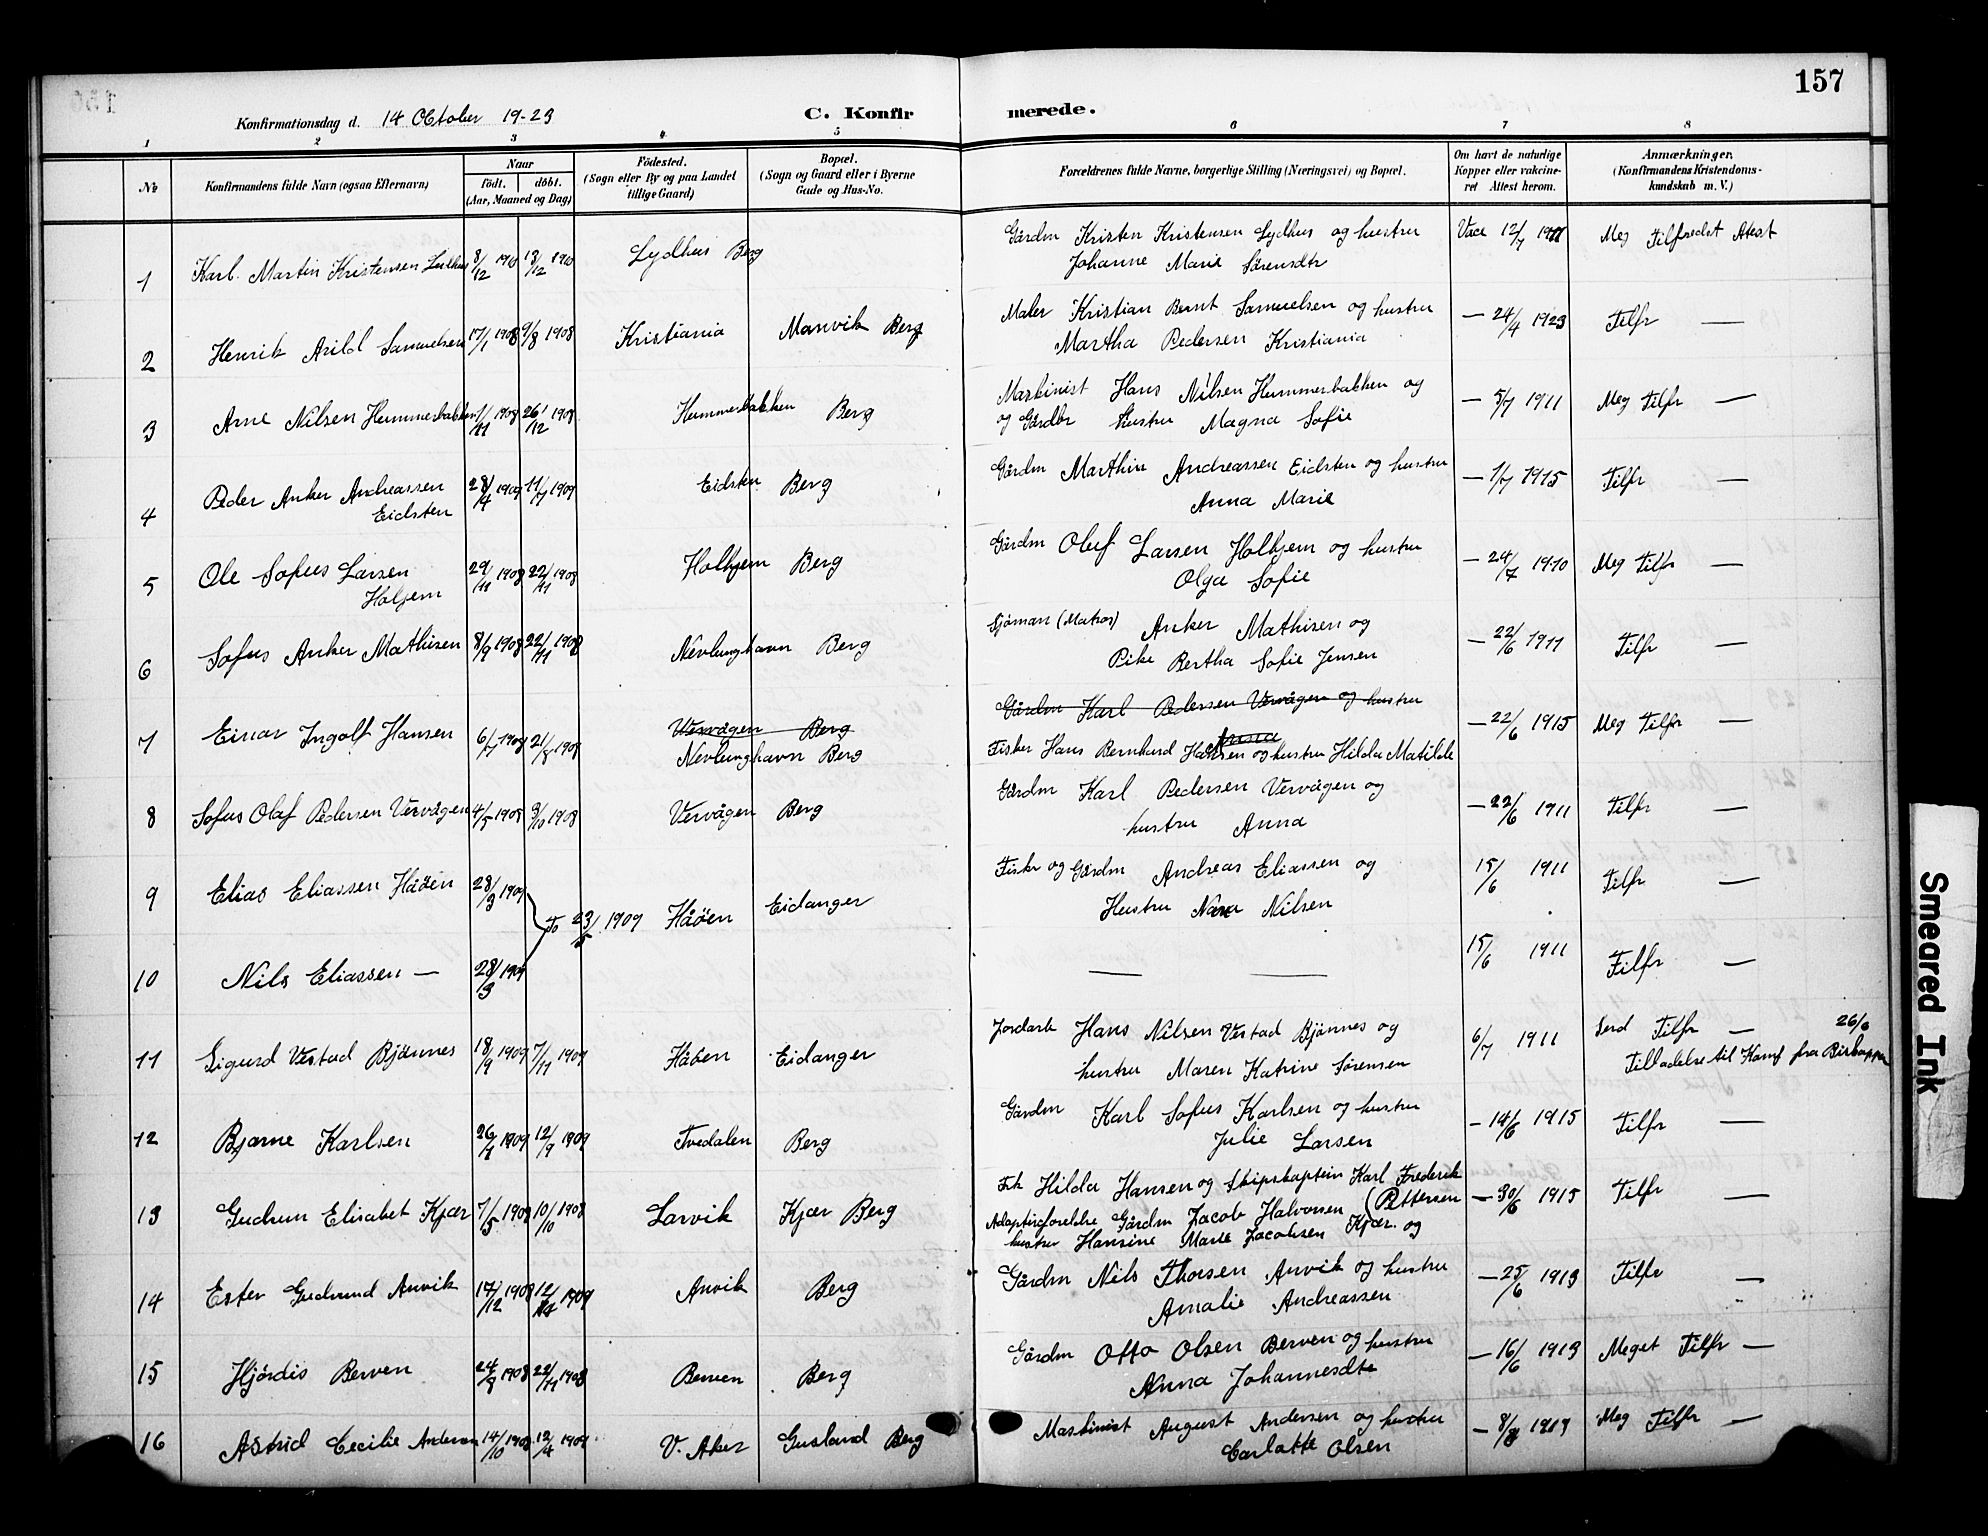 157
Konfirmationsdag d. 14 Oktober 19-23 C. Konfirmerede.
1 2 3 4 5 6 7 8
No Konfirmandens fulde Navn (ogsaa Efternavn) Naar født. døbt. (Aar, Maaned og Dag) Fødested. (Sogn eller By og paa Landet tillige Gaard) Bopæl. (Sogn og Gaard eller i Byerne Gade og Hus-No. Forældrenes fulde Navne, borgerlige Stilling (Næringsvei) og Bopæl. Om havt de naturlige Kopper eller vakcineret Attest herom. Anmærkninger. (Konfirmandens Kristendomskundskab m. V.)
1 Karl Martin Kristensen 3/12 13/12 Lydhus Berg Gårdm Kristen Kristensen Lydhus og hustru Vacc 12/7 1911 Meg Tilfredst Atest
Johanne Marie Sørensdtr
2 Henrik Arild Samuelsen 17/1 1908 9/8 1908 Kristiania Manvik Berg Maler Kristian Bernt Samuelsen og hustru — 24/4 1923 Tilfr —
Martha Pedersen Kristiania
3 Arne Nilsen Hummerbakken 1/11 1908 26/12 1908 Hummerbakken Berg Maskinist Hans Nilsen Hummerbakken og — 5/7 1911 Meg Tilfr —
og Gårdbr hustru Magna Sofie
4 Peder Anker Andreassen 28/4 1909 11/7 1909 Eidsten Berg Gårdm Marthin Andreassen Eidsten og hustru — 1/7 1915 Tilfr —
Eidsten Anna Marie
5 Ole Sofus Larsen 29/ 1908 22/11 1908 Holhjem Berg Gårdm Oluf Larsen Holhjem og hustru — 24/7 1910 Meg Tilfr —
Holjem Olga Sofie
6 Sofus Anker Mathisen 8/9 1908 22/11 1908 Nevlunghavn Berg Sjøman (Matros) Anker Mathisen og — 22/6 1911 Tilfr —
Pike Bertha Sofie Jensen
7 Einar Ingolf Hansen 6/7 1908 21/8 1908 Vervågen Berg Gårdm Karl Pedersen Vervågen og hustru — 22/6 1915 Meg Tilfr —
Anna
Nevlunghavn Berg Fisker Hans Bernhard Hansen og hustru Hilda Matilde
8 Sofus Olaf Pedersen Vervågen 4/5 1908 3/10 1908 Vervågen Berg Gårdm Karl Pedersen Vervågen og — 22/6 1911 Tilfr —
hustru Anna
9 Elias Eliassen Håöen 28/3 1909 Fisker og Gårdm Andreas Eliassen og 15/6 1911 Tilfr —
23/5 1909 Håöen Eidanger Hustru Nilsen
10 Nils Eliassen — 28/3 1909 — — 15/6 1911 Tilfr —
11 Sigurd Vestad Bjönnes 18/9 1909 7/11 1909 Håöen Eidanger Jordarb Hans Nilsen Vestad Bjönnes og 6/7 1911 Tilfr — 26/6
hustru Maren Katrine Sørensen Tilladelse til Konf fra Biskoppen
12 Bjarne Karlsen 26/ 1909 12/9 1909 Tvedalen Berg Gårdm Karl Sofus Karlsen og hustru — 14/6 1915 Tilfr —
Julie Larsen
13 Gudrun Elisabet Kjær 7/5 1908 10/10 1908 Larvik Kjær Berg Frk Hilda Hansen og Skipskaptein Karl Frederik — 30/6 1915 Tilfr —
(Pettersen
Adoptivforeldre Gårdm Jacob Halvorsen Kjær og
hustru Hansine Marie Jacobsen
14 Ester Gudrund Anvik 17/12 1908 12/ 1909 Anvik Berg Gårdm Nils Thorsen Anvik og hustru — 25/6 1913 Tilfr —
Amalie Andreassen
15 Hjördis Berven 24/ 1908 22/11 1908 Berven Berg Gårdm Otto Olsen Berven og hustru — 16/6 1913 Meget Tilfr —
Anna Johannesdtr
16 Astrid Cecilie Andersen 14/10 1908 12/4 1909 V. Aker Gusland Berg Maskinist August Andersen og hustru — 8/ 1913 Meg Tilfr —
Carlotte Olsen
Smeared Ink